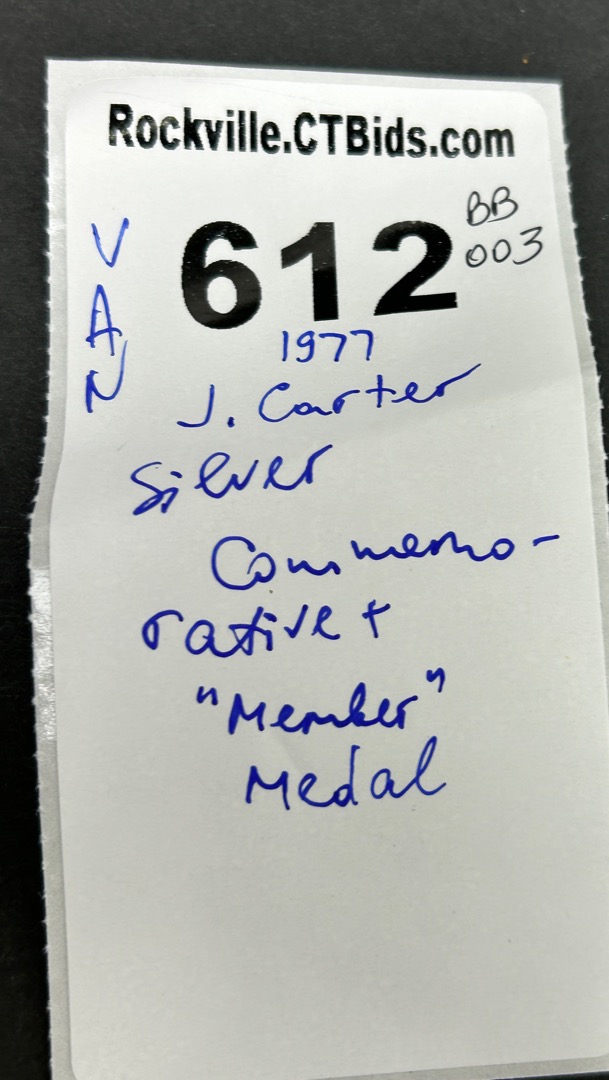 Rockville.CTBids.com
VAN
612
BB
003
1977
J. Carter
Silver
Commemo-
rative +
"Member"
Medal